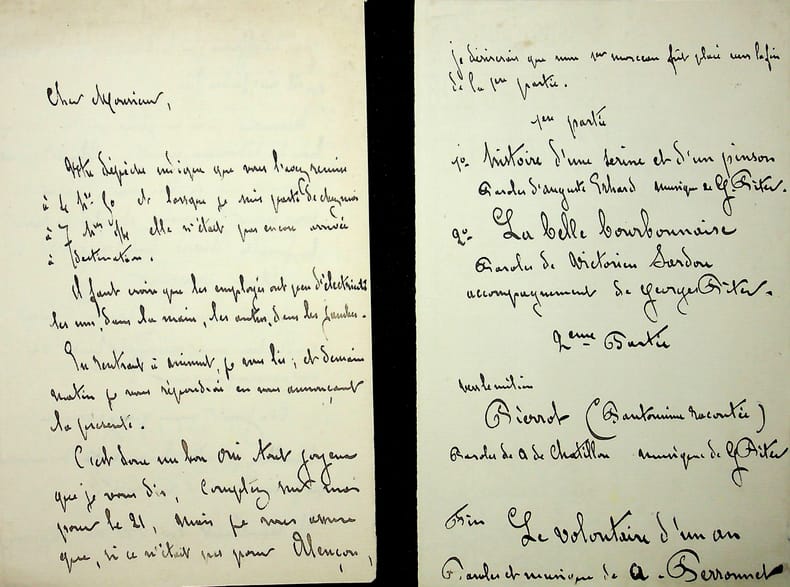 Cher Monsieur,
Votre dépêche indique que vous l'avez remise
à 4 hrs 50 et lorsque je suis parti de chez moi
à 7 hrs 1/4 elle n'était pas encore arrivée
à destination.
Il faut croire que les employés ont peu d'électricité
les uns, dans la main, les autres, dans les jambes.
En rentrant à minuit, je vous lis, et demain
matin je vous répondrai en vous annonçant
la présente.
C'est donc un bon oui tout joyeux
que je vous dis, Comptez sur moi
pour le 21, mais je vous assure
que, si ce n'était pas pour Alençon,
je désirerais que mon 1er morceau fût placé vers la fin
de la 1ère partie.
1ère partie
1o- histoire d'une serine et d'un pinson
Paroles d'auguste Erhard musique de G. Piter.
2o- La belle bourbonnaise
Paroles de Victorien Sardou
accompagnement de Georges Piter.
2eme Partie
vers le milieu
Pierrot (Pantomime racontée)
Paroles de A de Chatillon musique de G Piter
Fin Le volontaire d'un an
Paroles et musique de A. Perronnet